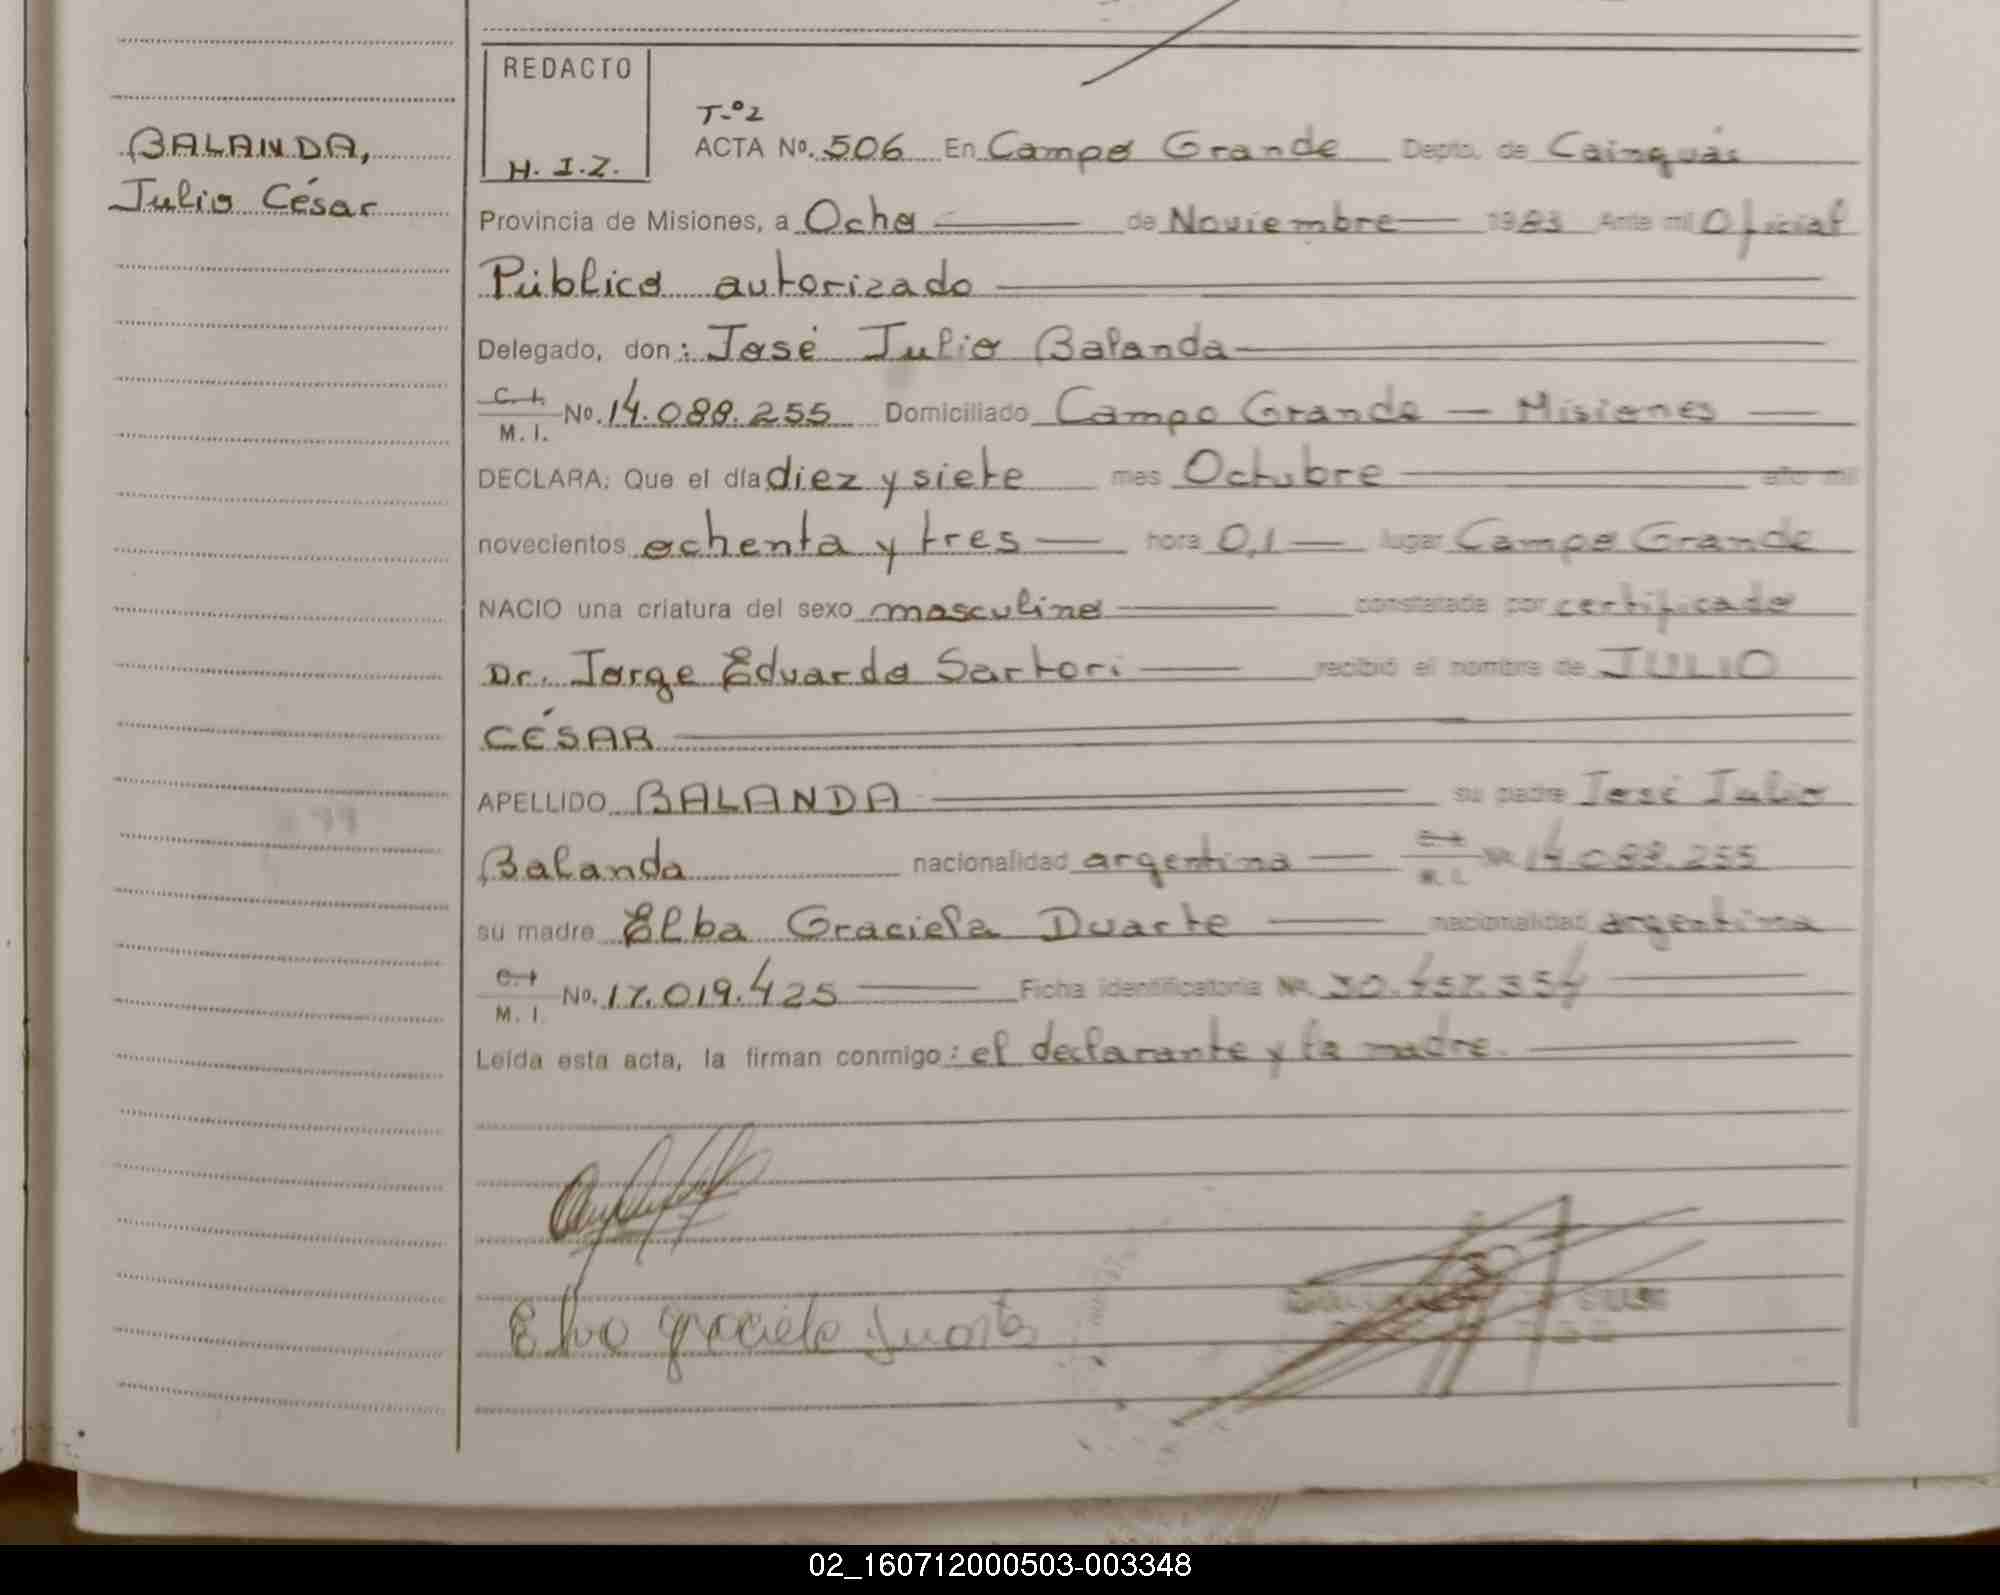 REDACTO
H. I. Z.
BALANDA,
Julio César
T-º2
ACTA Nº. 506 En Campo Grande Depto. de Cainguás
Provincia de Misiones, a Ocho de Noviembre 1983 Ante mí Oficial
Público autorizado
Delegado, don: José Julio Balanda
C. I.
M. I. Nº. 14.088.255 Domiciliado Campo Grande — Misiones
DECLARA: Que el día diez y siete mes Octubre año mil
novecientos ochenta y tres hora 0,1 lugar Campo Grande
NACIO una criatura del sexo masculino constatada por certificado
Dr. Jorge Eduardo Sartori recibió el nombre de JULIO
CÉSAR
APELLIDO BALANDA su padre José Julio
Balanda nacionalidad argentina C. I.
M. I. Nº 14.088.255
su madre Elba Graciela Duarte nacionalidad argentina
C. I.
M. I. Nº. 17.019.425 Ficha identificatoria Nº 30.457.354
Leída esta acta, la firman conmigo: el declarante y la madre.
Elba graciela Duarte
02_160712000503-003348